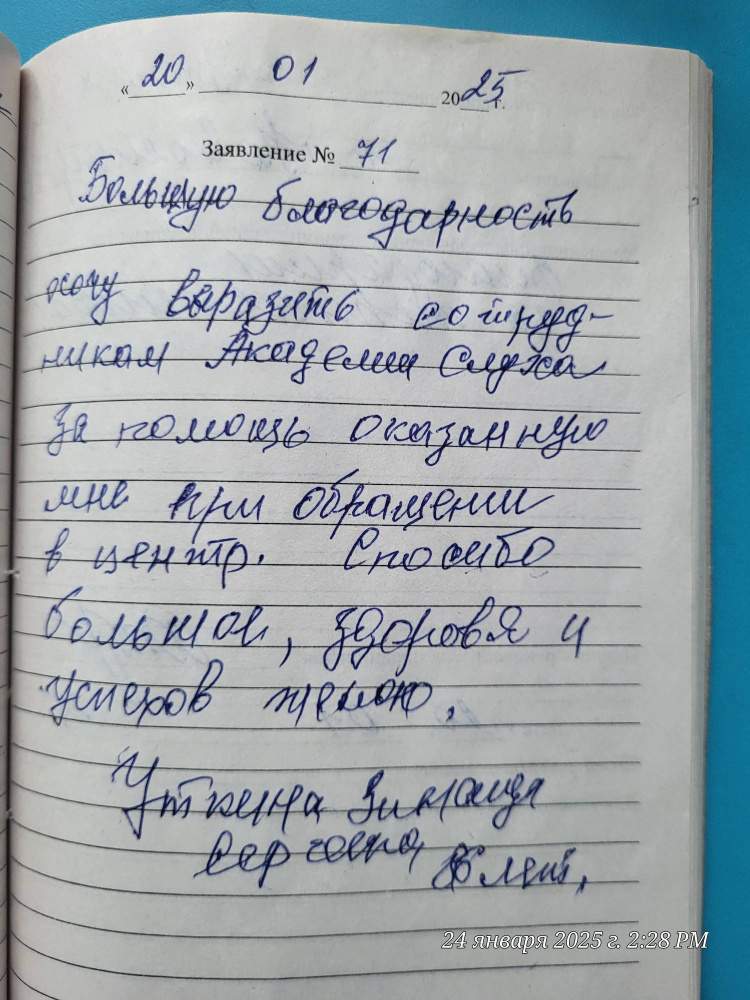 «20» 01 2025 г.
Заявление № 71
Большую благодарность
хочу выразить сотруд-
никам Академии Слуха
за помощь оказанную
мне при обращении
в центр. Спасибо
большое, здоровя и
успехов желаю.
Уткина Зинаида
Сергеевна, 86 лет.
24 января 2025 г. 2:28 PM